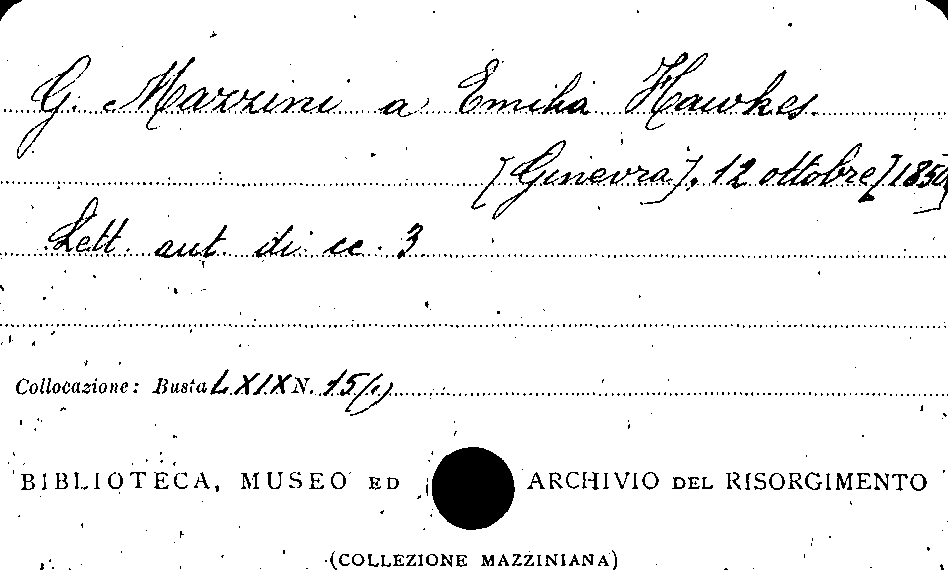 G. Mazzini a Emilia Hawkes.
[Ginevra], 12 ottobre [1850]
Lett. aut. di cc. 3
Collocazione: Busta LXIX N. 15(1)
BIBLIOTECA, MUSEO ED ARCHIVIO DEL RISORGIMENTO
(COLLEZIONE MAZZINIANA)